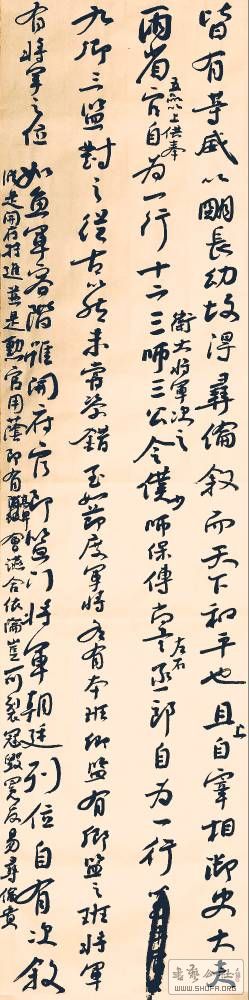 皆有等威以明長幼故得彝倫叙而天下和平也且上自宰相御史大夫
兩省五品以上供奉官自為一行十二衛大將軍次之三師三公令僕少師保傅尚書左右丞侍郎自為一行
九卿三監對之從古以然未嘗參錯至如節度軍將各有本班卿監有卿監之班將軍
有將軍之位
如魚軍容階雖開府官即監門將軍朝廷列位自有次叙
縱是開府特進並是勳官用蔭即有高卑會讌合依倫豈可裂冠毀冕反易彝倫貴
WWW.SHUFA.ORG